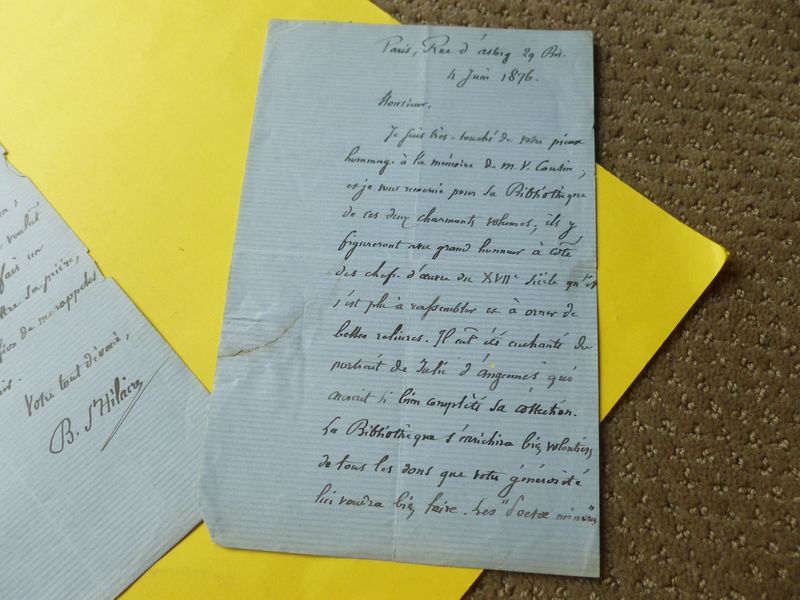 Paris, Rue d'Astorg 29 Bis.
4 Juin 1876.
Monsieur,
Je suis très-touché de votre pieux
hommage à la mémoire de M. V. Cousin,
et je vous remercie pour sa Bibliothèque
de ces deux charmants volumes; ils y
figureront avec grand honneur à côté
des chefs d'œuvre du XVIIe siècle qu'il
s'est plu à rassembler et à orner de
belles reliures. Il eut été enchanté du
portrait de Julie d'Angennes qui
aurait si bien complété sa collection.
La Bibliothèque s'enrichira bien volontiers
de tous les dons que votre générosité
lui voudra bien faire. Les "Poetae minores"
voulut
fais un
sa prière,
de me rappeler
Votre tout dévoué,
B. St Hilaire